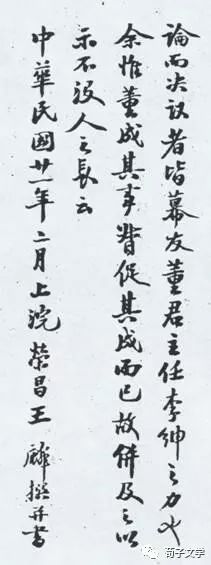 論而决议者皆幕友董君主任李紳之力也
余惟董成其事督促其成而已故併及之以
示不没人之長云
中華民國廿一年二月上浣榮昌王麟撰并書
荀子文学